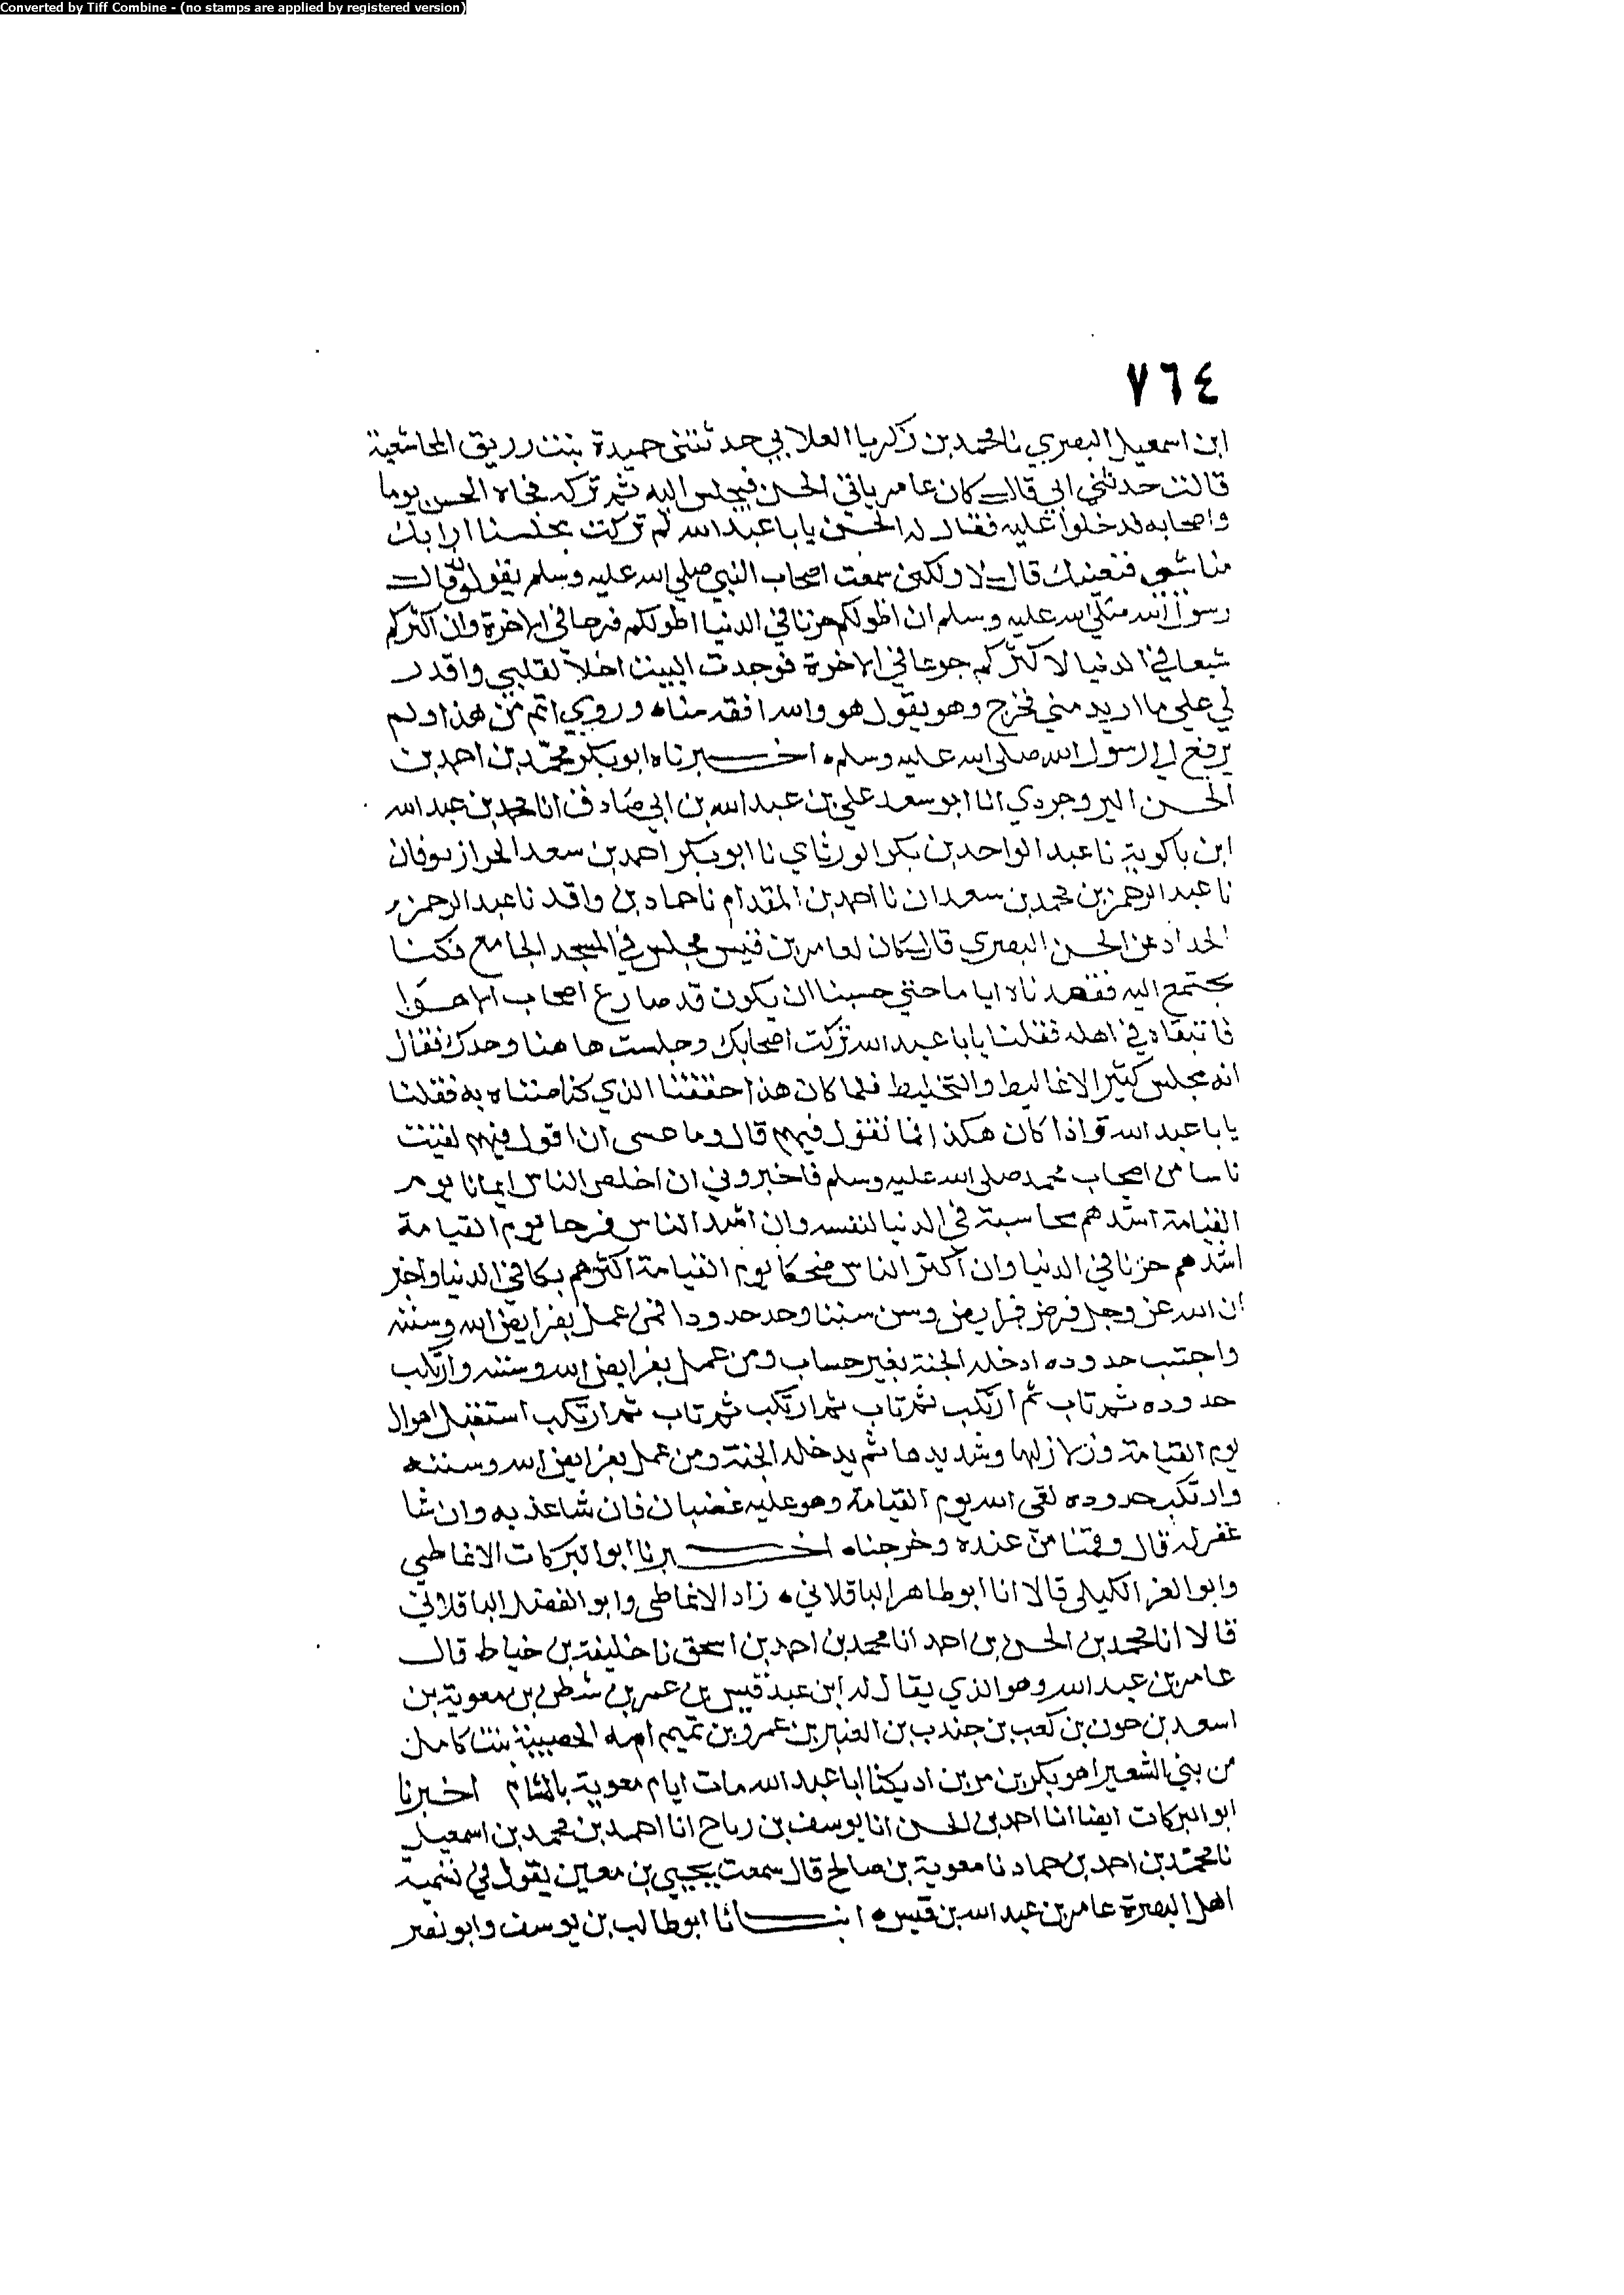 Converted by Tiff Combine - (no stamps are applied by registered version)
٧٦٤
ابن اسمعيل البصري نا محمد بن زكريا العلابي حدثتني حميدة بنت رريق المجاشعية
قالت حدثني ابي قال كان عامر ياتي الحسن فيجلس اليه ثم تركه فجاه الحسن يوما
واصحابه فدخلوا عليه فقال له الحسن يابا عبد الله لم تركت مجلسنا ارابك
منا شي فنعتبك قال لا ولكني سمعت اصحاب النبي صلى الله عليه وسلم يقولون قال
رسول الله صلى الله عليه وسلم ان اطولكم حزنا في الدنيا اطولكم فرحا في الاخرة وان اكثركم
شبعا في الدنيا لاكثركم جوعا في الاخرة فوجدت البيت اخلا لقلبي واقدر
لي علي ما اريد مني فخرج وهو يقول هو والله افقه مناه وروي اتم من هذا ولم
يرفع الي رسول الله صلى الله عليه وسلم اخبرناه ابو بكر محمد بن احمد بن
الحسن البروجردي انا ابو سعد علي بن عبد الله بن ابي صادق انا محمد بن عبد الله
ابن باكوية نا عبد الواحد بن بكر الورثاي نا ابو بكر احمد بن سعد الحراز
نا عبد الرحمن بن محمد بن سعدان نا احمد بن المقدام نا حماد بن واقد نا عبد الرحمن
الحداد عن الحسن البصري قال كان لعامر بن قيس مجلس في المسجد الجامع فكنا
نجتمع اليه ففقدناه اياما حتي حسبنا ان يكون قد صارع اصحاب الاهوا
فاتيناه في اهله فقلنا يابا عبد الله تركت اصحابك وجلست ها هنا وحدك فقال
انه مجلس كثير الاغاليط والتخليط فلما كان هذا حققنا الذي كنا ظنناه به فقلنا
يابا عبد الله واذا كان هكذا فما تقول فيهم قال وما عسى ان اقول فيهم لقيت
ناسا من اصحاب محمد صلى الله عليه وسلم فاخبروني ان اخلص الناس ايمانا يوم
القيامة اشدهم محاسبة في الدنيا لنفسه وان اشد الناس فرحا يوم القيامة
اشدهم حزنا في الدنيا وان اكثر الناس ضحكا يوم القيامة اكثرهم بكا في الدنيا واخبر
ان الله عز وجل فرض فرايض وسن سننا وحد حدودا فمن عمل بفرايض الله وسننه
واجتنب حدوده ادخله الجنة بغير حساب ومن عمل بفرايض الله وسننه وارتكب
حدوده ثم تاب ثم ارتكب ثم تاب ثم ارتكب ثم تاب ثم ارتكب استقبل اهوال
يوم القيامة وزلازلها وشديدها ثم يدخله الجنة ومن عمل بفرايض الله وسننه
وارتكب حدوده لقى الله يوم القيامة وهو عليه غضبان فان شا عذبه وان شا
غفر له قال وقمنا من عنده وخرجناه اخبرنا ابو البركات الانماطي
وابو العز الكيلي قالا انا ابو طاهر الباقلاني زاد الانماطي وابو الفضل الباقلاني
قالا انا محمد بن الحسن بن احمد انا محمد بن احمد بن اسحق نا خليفة بن خياط قال
عامر بن عبد الله وهو الذي يقال له ابن عبد قيس بن عمر بن شطن بن معوية بن
اسعد بن حون بن كعب بن جندب بن العنبر بن عمرو بن تميم امه الخصيبة بنت كامل
من بني الشعيرا هو بكر بن مر بن اد يكنا ابا عبد الله مات ايام معوية بالشام اخبرنا
ابو البركات ايضا انا احمد بن الحسن انا يوسف بن رباح انا احمد بن محمد بن اسمعيل
نا محمد بن احمد بن حماد نا معوية بن صالح قال سمعت يحيي بن معين يقول في تسمية
اهل البصرة عامر بن عبد الله بن قيس انبانا ابو طالب بن يوسف وابو نصر